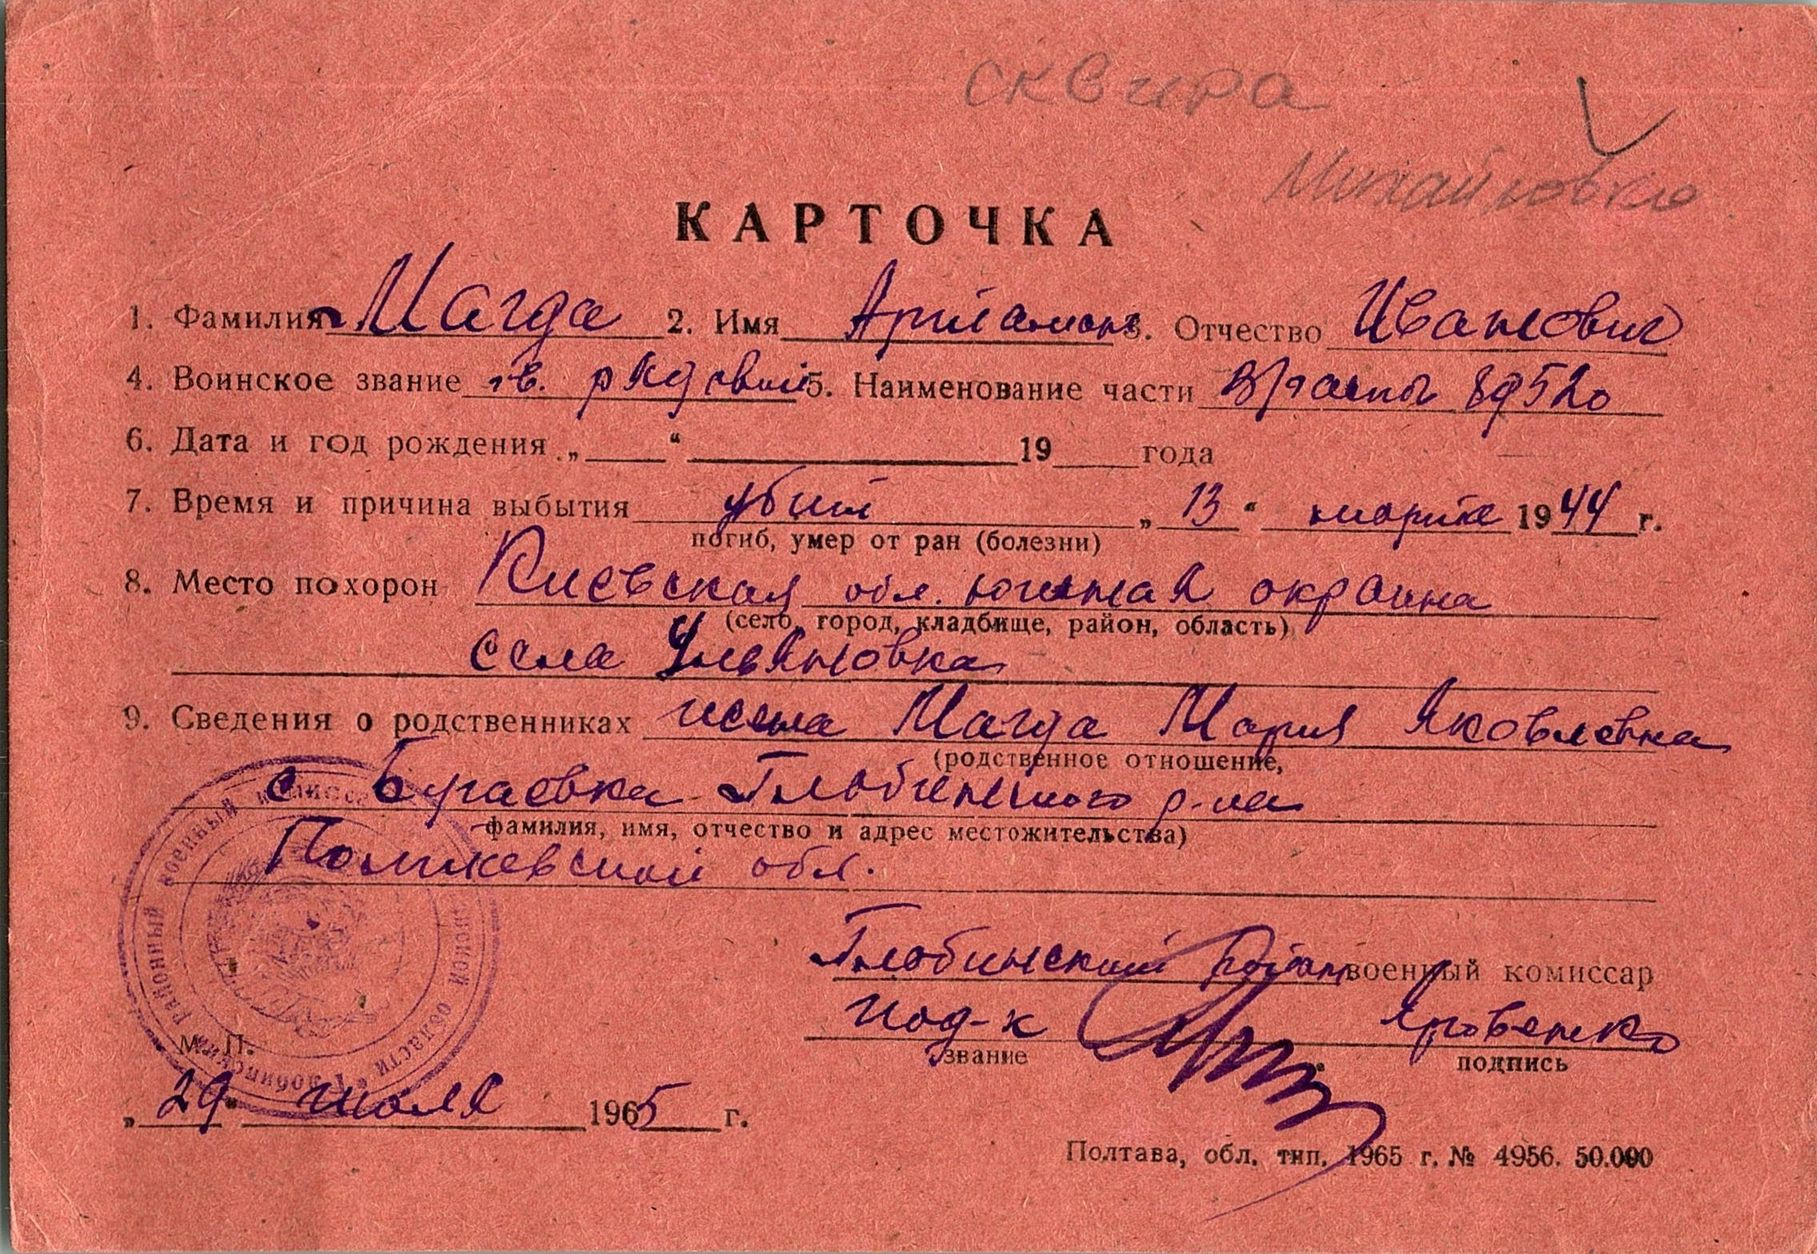 сквира
Михайловка
КАРТОЧКА
1. Фамилия Магда 2. Имя Артамон 3. Отчество Иванович
4. Воинское звание гв. рядовой 5. Наименование части
6. Дата и год рождения „ “ 19 года
7. Время и причина выбытия убит „ 13 “ марта 1944 г.
погиб, умер от ран (болезни)
8. Место похорон Киевская обл. южная окраина
(село, город, кладбище, район, область)
села Ульяновка
9. Сведения о родственниках жена Магда Мария Яковлевна
(родственное отношение,
с. Бугаевка Глобинского р-на
фамилия, имя, отчество и адрес местожительства)
Полтавской обл.
Глобинский райвоенный комиссар
под-к Яровенко
звание подпись
М. П.
„ 29 “ июля 1965 г.
Полтава, обл. тип. 1965 г. № 4956. 50.000